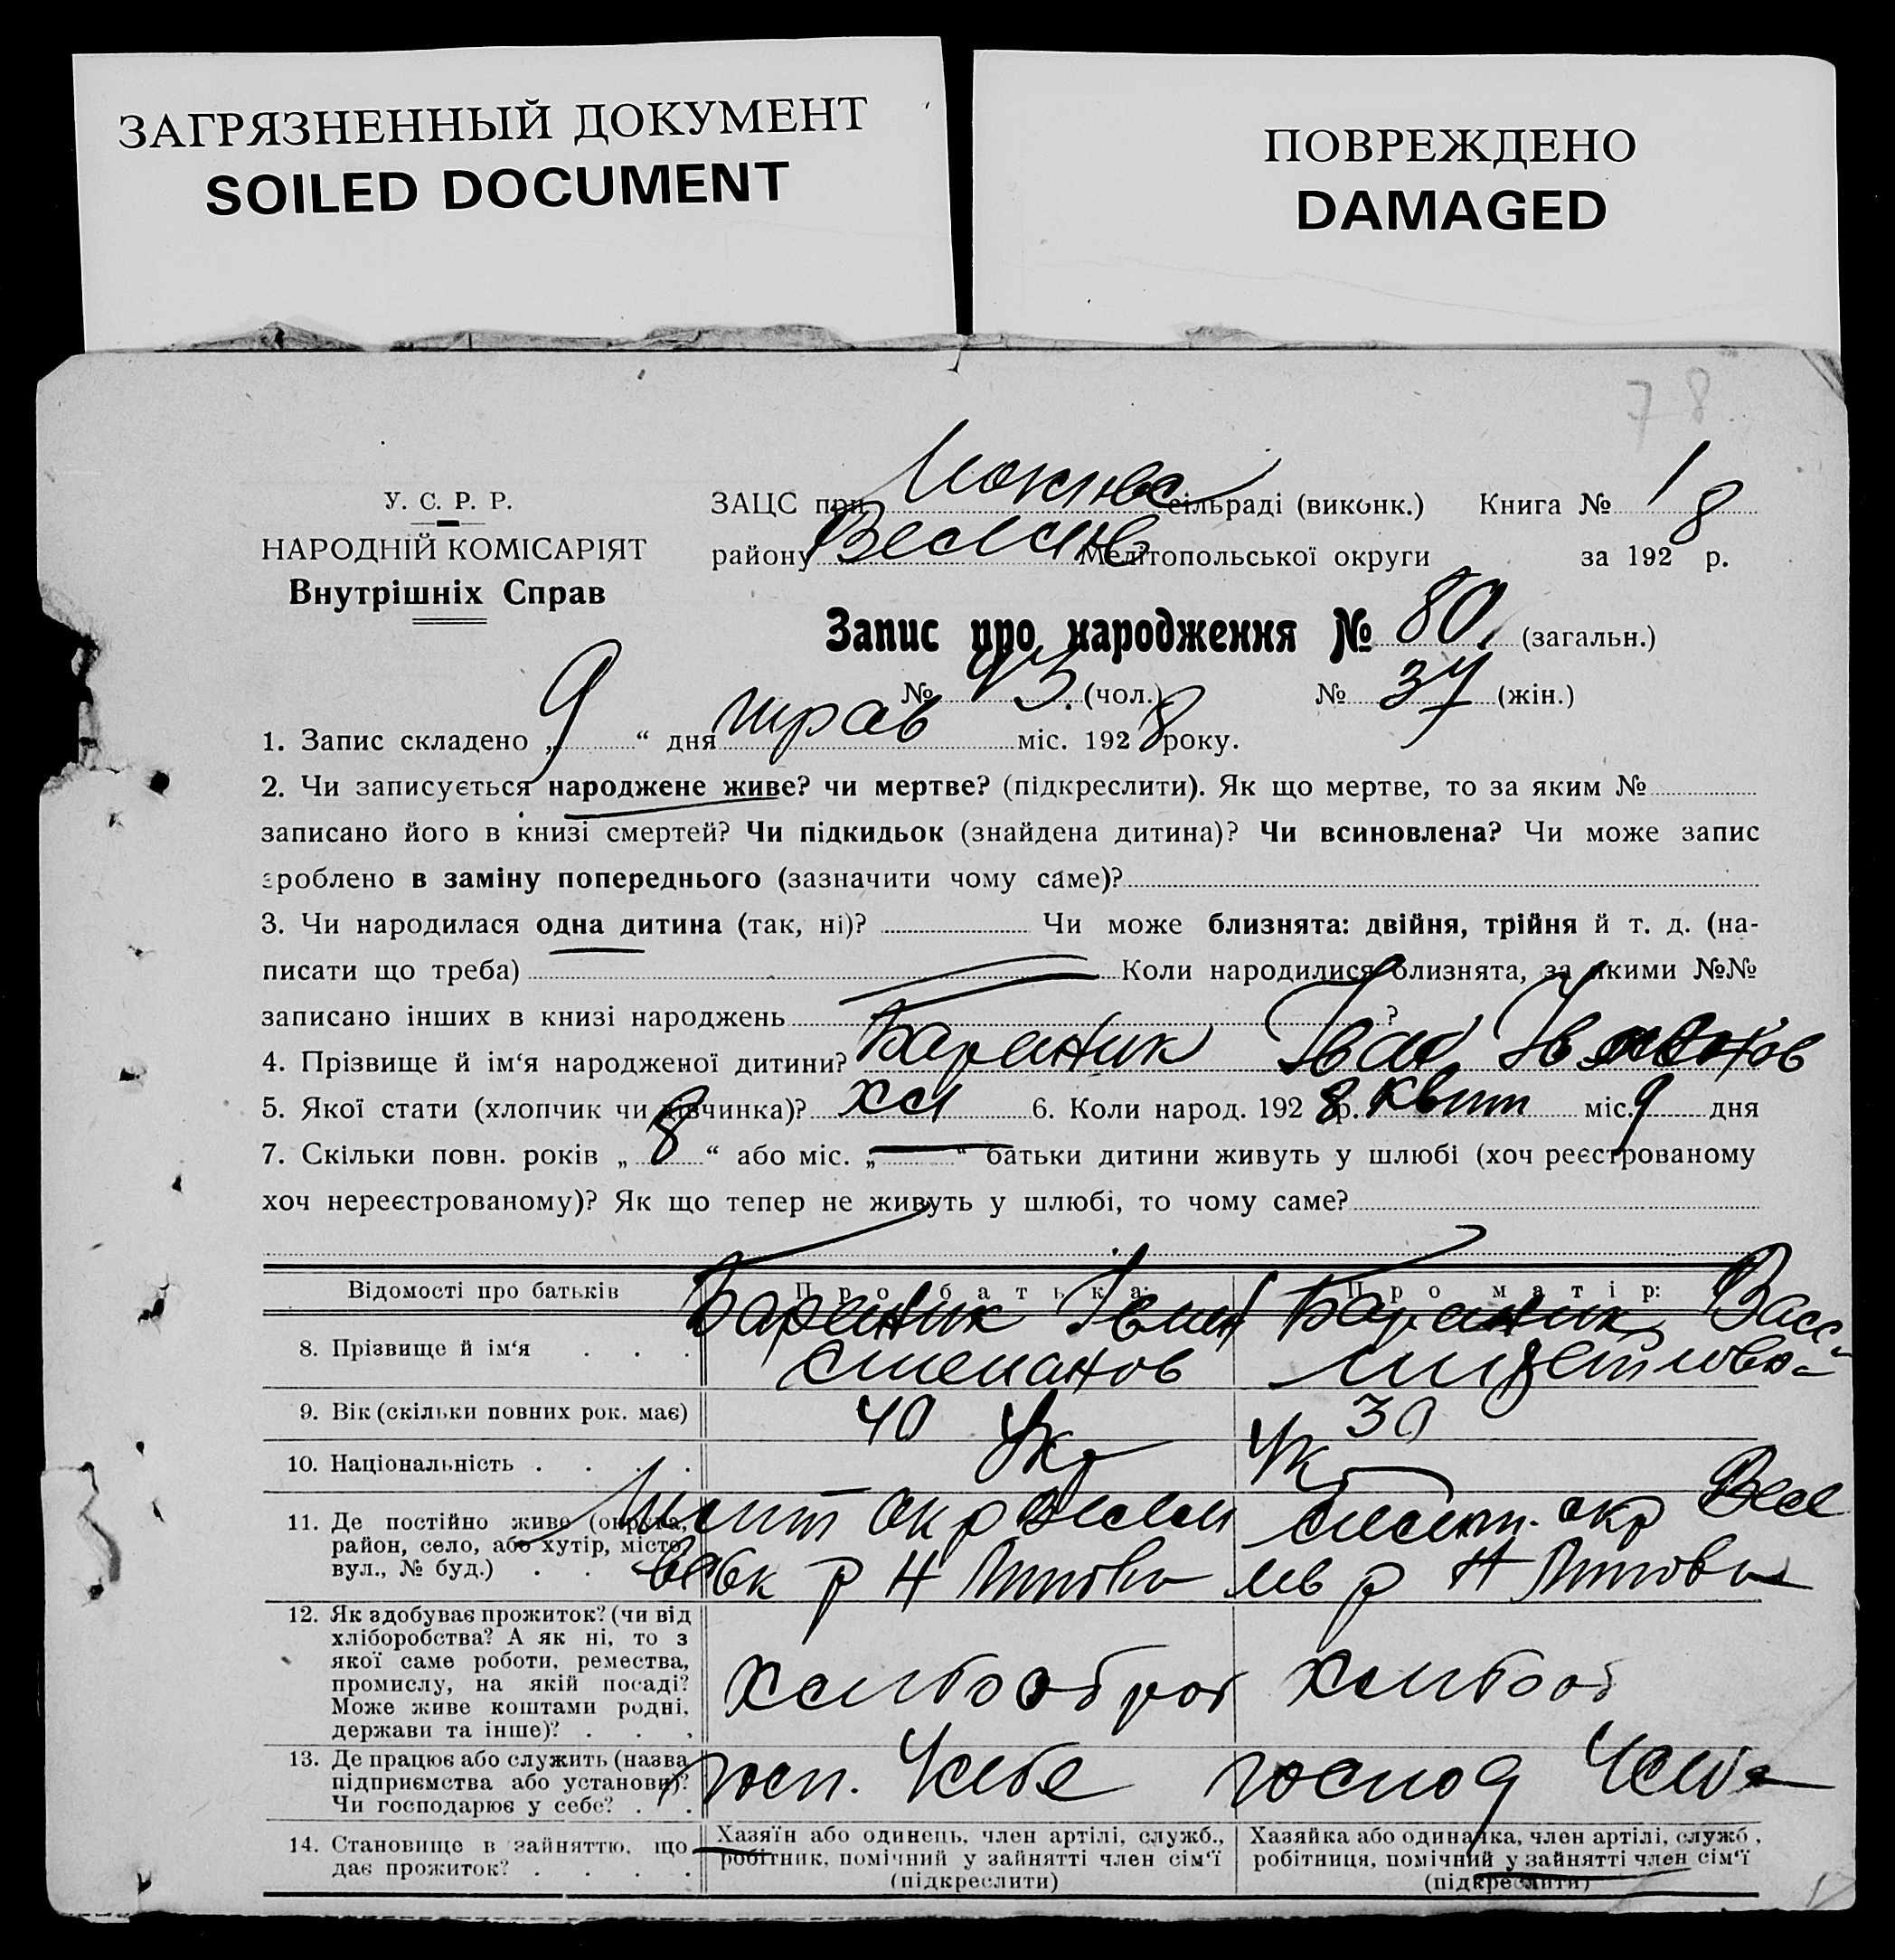 ЗАГРЯЗНЕННЫЙ ДОКУМЕНТ
SOILED DOCUMENT
ПОВРЕЖДЕНО
DAMAGED
78
У. С. Р. Р.
НАРОДНІЙ КОМІСАРІЯТ
Внутрішніх Справ
ЗАЦС при сільраді (виконк.) Книга № 1
району Весел Мелітопольської округи за 1928 р.
Запис про народження № 80. (загальн.)
№ 43 (чол.) № 37 (жін.)
1. Запис складено „9“ дня трав міс. 1928 року.
2. Чи записується народжене живе? чи мертве? (підкреслити). Як що мертве, то за яким №
записано його в книзі смертей? Чи підкидьок (знайдена дитина)? Чи всиновлена? Чи може запис
зроблено в заміну попереднього (зазначити чому саме)?
3. Чи народилася одна дитина (так, ні)? Чи може близнята: двійня, трійня й т. д. (на-
писати що треба) Коли народилися близнята, за якими №№
записано інших в книзі народжень ?
4. Прізвище й ім‘я народженої дитини? Бараник Іван Іванов
5. Якої стати (хлопчик чи дівчинка)? хл 6. Коли народ. 1928 р. квіт міс. 9 дня
7. Скільки повн. років „8“ або міс. „—“ батьки дитини живуть у шлюбі (хоч реєстрованому
хоч нереєстрованому)? Як що тепер не живуть у шлюбі, то чому саме?
Відомості про батьків Про батька: Про матір:
8. Прізвище й ім‘я . . . Бараник Іван Бараник Васс
степанов
9. Вік (скільки повних рок. має) 40 30
10. Національність . . . . Укр Укр
11. Де постійно живе (округа, окр окр Весе
район, село, або хутір, місто,
вул., № буд.) . . р Н р Н
12. Як здобуває прожиток? (чи від
хліборобства? А як ні, то з
якої саме роботи, ремества,
промислу, на якій посаді?
Може живе коштами родні,
держави та інше)? . . .
13. Де працює або служить (назва
підприємства або установи)? госп. Усебе господ Усебе
Чи господарює у себе? . .
14. Становище в зайняттю, що
дає прожиток? . . . .
Хазяїн або одинець, член артілі, служб.,
робітник, помічний у зайнятті член сім‘ї
(підкреслити)
Хазяйка або одиначка, член артілі, служб,
робітниця, помічний у зайнятті член сім‘ї
(підкреслити)